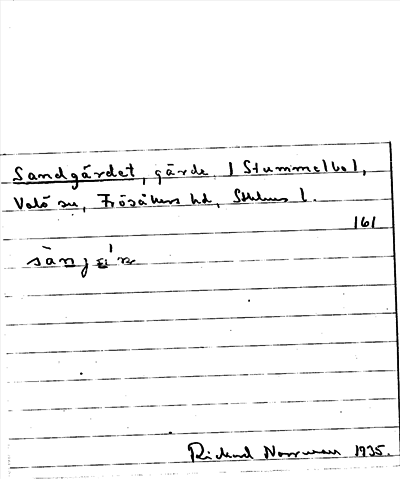 Sandgärdet, gärde, i Stummelbol,
Valö sn, Frösåkers hd, Sthlms l.
161
Richard Norrman 1935.